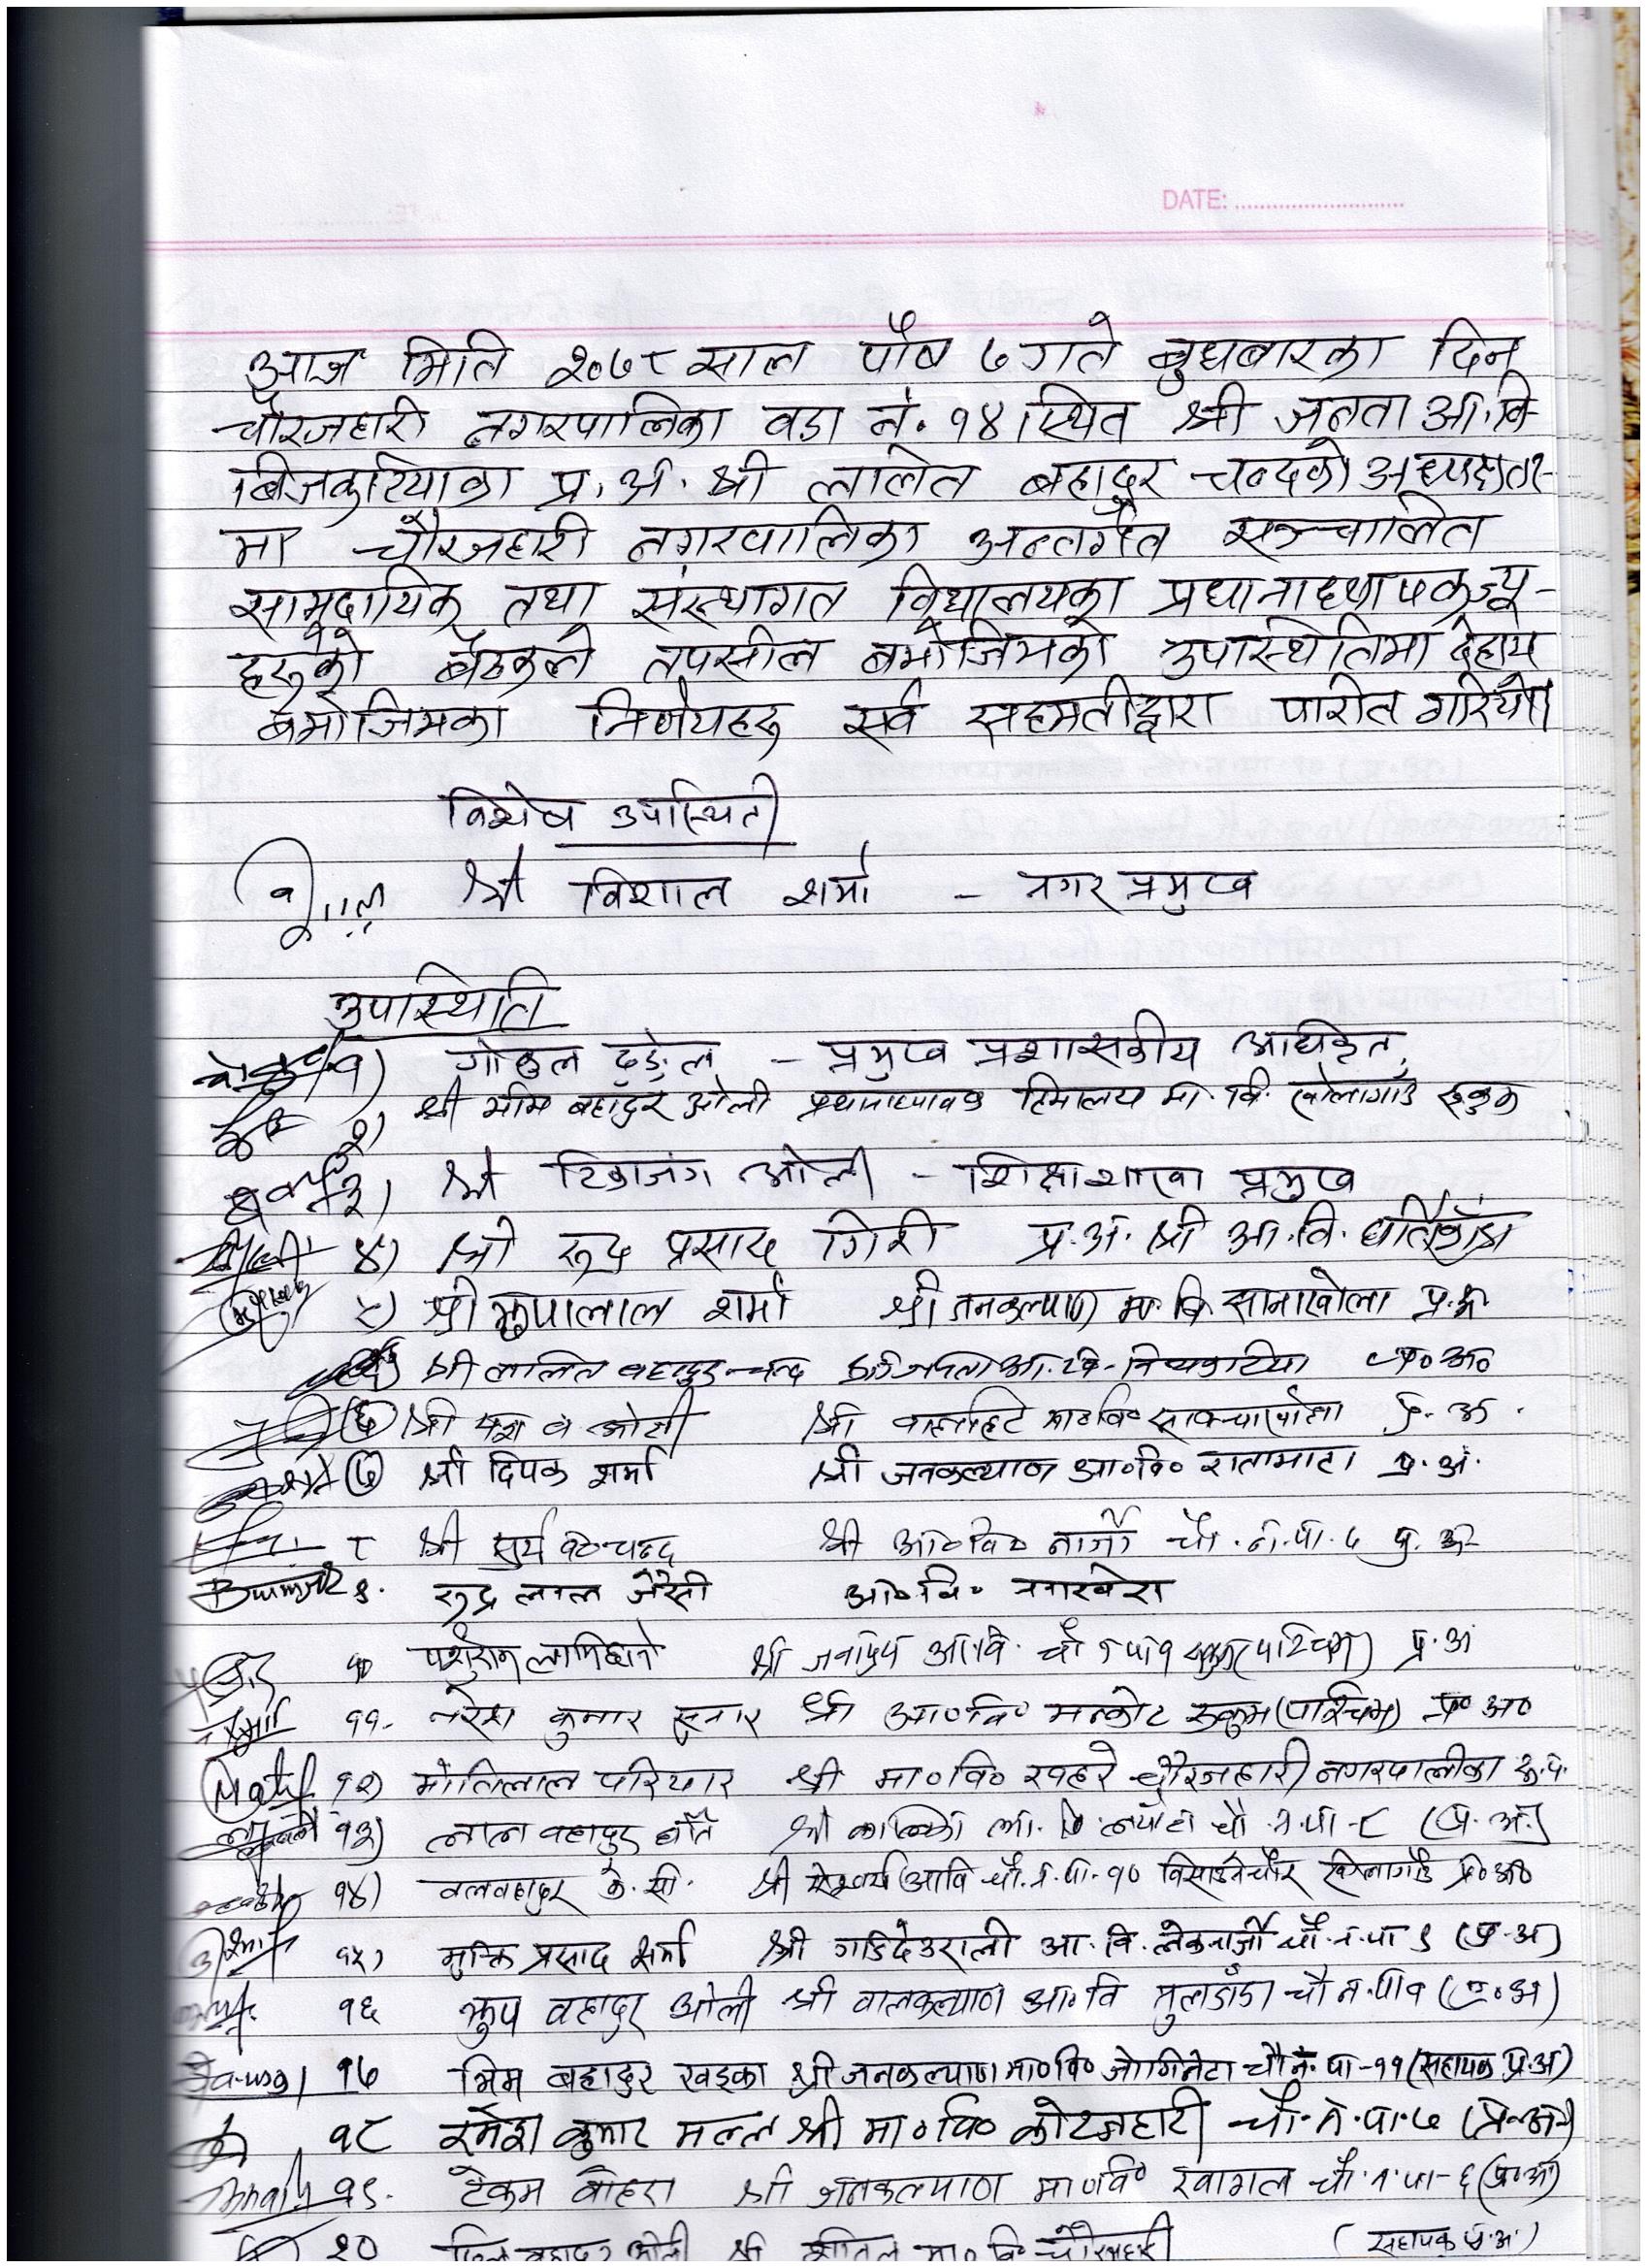 DATE: ...........................
आज मिति २०७८ साल पौष ७ गते बुधबारका दिन
चौरजहारी नगरपालिका वडा नं. १४ स्थित श्री जनता आ.वि
बिजकुटियाका प्र. अ. श्री ललित बहादुर चन्दको अध्यक्षता-
मा चौरजहारी नगरपालिका अन्तर्गत सञ्चालित
सामुदायिक तथा संस्थागत विद्यालयका प्रधानाध्यापकज्यू-
हरुको बैठकले तपसील बमोजिमको उपस्थितिमा देहाय
बमोजिमका निर्णयहरु सर्व सहमतीद्वारा पारीत गरियो।
विशेष उपस्थिती
श्री विशाल शर्मा - नगर प्रमुख
उपस्थिति
१) गोकुल ढुङ्गेल - प्रमुख प्रशासकीय अधिकृत
२) श्री भीम बहादुर ओली प्रधानाध्यापक हिमालय मा. वि. खोलागाउँ रुकुम
३) श्री टिकाजंग ओली - शिक्षा शाखा प्रमुख
४) श्री रुद्र प्रसाद गिरी प्र. अ. श्री आ. वि. घर्तिडाँडा
५) श्री झुपालाल शर्मा श्री जनकल्याण मा. वि सानाखोला प्र. अ.
श्री ललित बहादुर चन्द श्री जनता आ. वि. प्र० अ०
(६) श्री ओली श्री मा० वि० प्र. अ.
(७) श्री दिपक शर्मा श्री जनकल्याण आ० वि० रातामाटा प्र. अं.
८ श्री सुर्य व० चन्द श्री आ० वि० नार्जी चौ. न. पा. ५ प्र. अ
९. रुद्र लाल जैसी आ० वि०
१० लामिछाने श्री आ वि. चौ न पा १ रुकुम (पश्चिम) प्र. अ
११- नरेश कुमार सुनार श्री आ० वि० मन्कोट रुकुम (पश्चिम) प्र० अ०
१२) मोतिलाल परियार श्री मा० वि० खहरे चौरजहारी नगरपालीका रु. प.
१३) लाल बहादुर श्री कालिका चौ. न. पा - ८ (प्र. अ.)
१४) वलबहादुर के. सी. श्री आवि चौ. न. पा. - १० प्र० अ०
१५) मुक्ति प्रसाद शर्मा श्री गडिदेउराली आ. वि. लेकनार्जी चौ. न. पा ९ (प्र. अ)
१६ झुप बहादुर ओली श्री वालकल्याण आ० वि मुलाडाँडा चौ न. पा १ (प्र. अ)
१७ भिम बहादुर खड्का श्री जनकल्याण मा० वि० जोगिनेटा चौ न. पा - ११ (सहायक प्र. अ)
१८ रमेश कुमार मल्ल श्री मा० वि० कोटजहारी चौ. न. पा. ७ (प्र. अ)
१९. टेकम बोहरा श्री जनकल्याण मा० वि० खागल चौ. न. पा - ६ (प्र० अ)
२० श्री शीतल मा० वि० चौरजहारी (सहायक प्र. अ.)